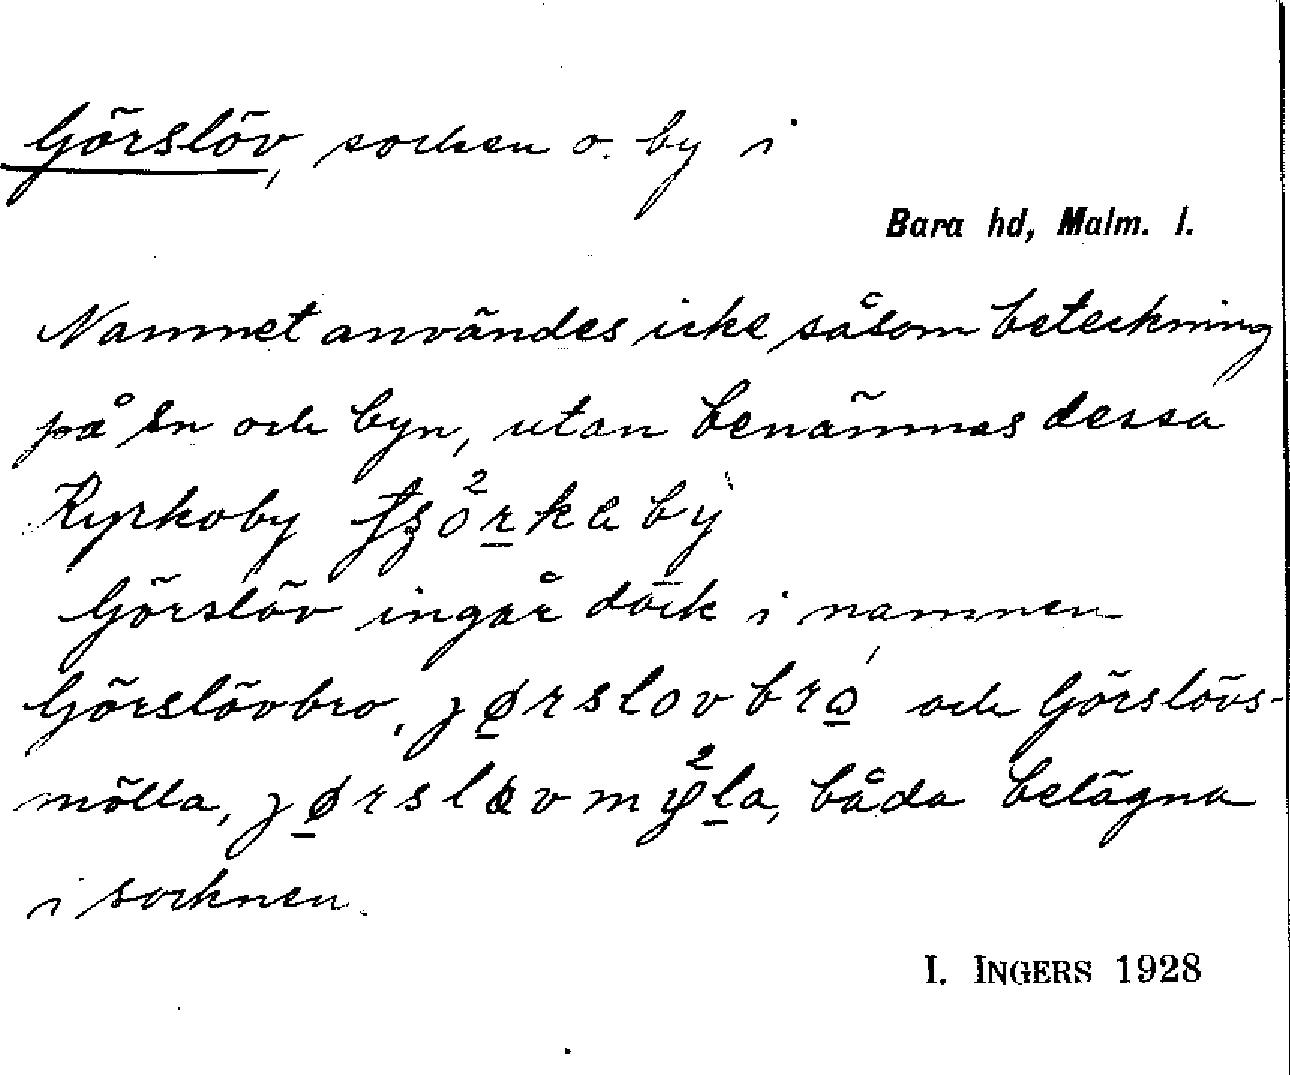 Görslöv, socken o. by i
Bara hd, Malm. l.
Namnet användes icke såsom beteckning
på sn och byn, utan benämnas dessa
Kyrkoby
Görslöv ingår dock i namnen
Görslövbro, jørslovbro och Görslövs-
mölla, båda belägna
i socknen.
I. INGERS 1928